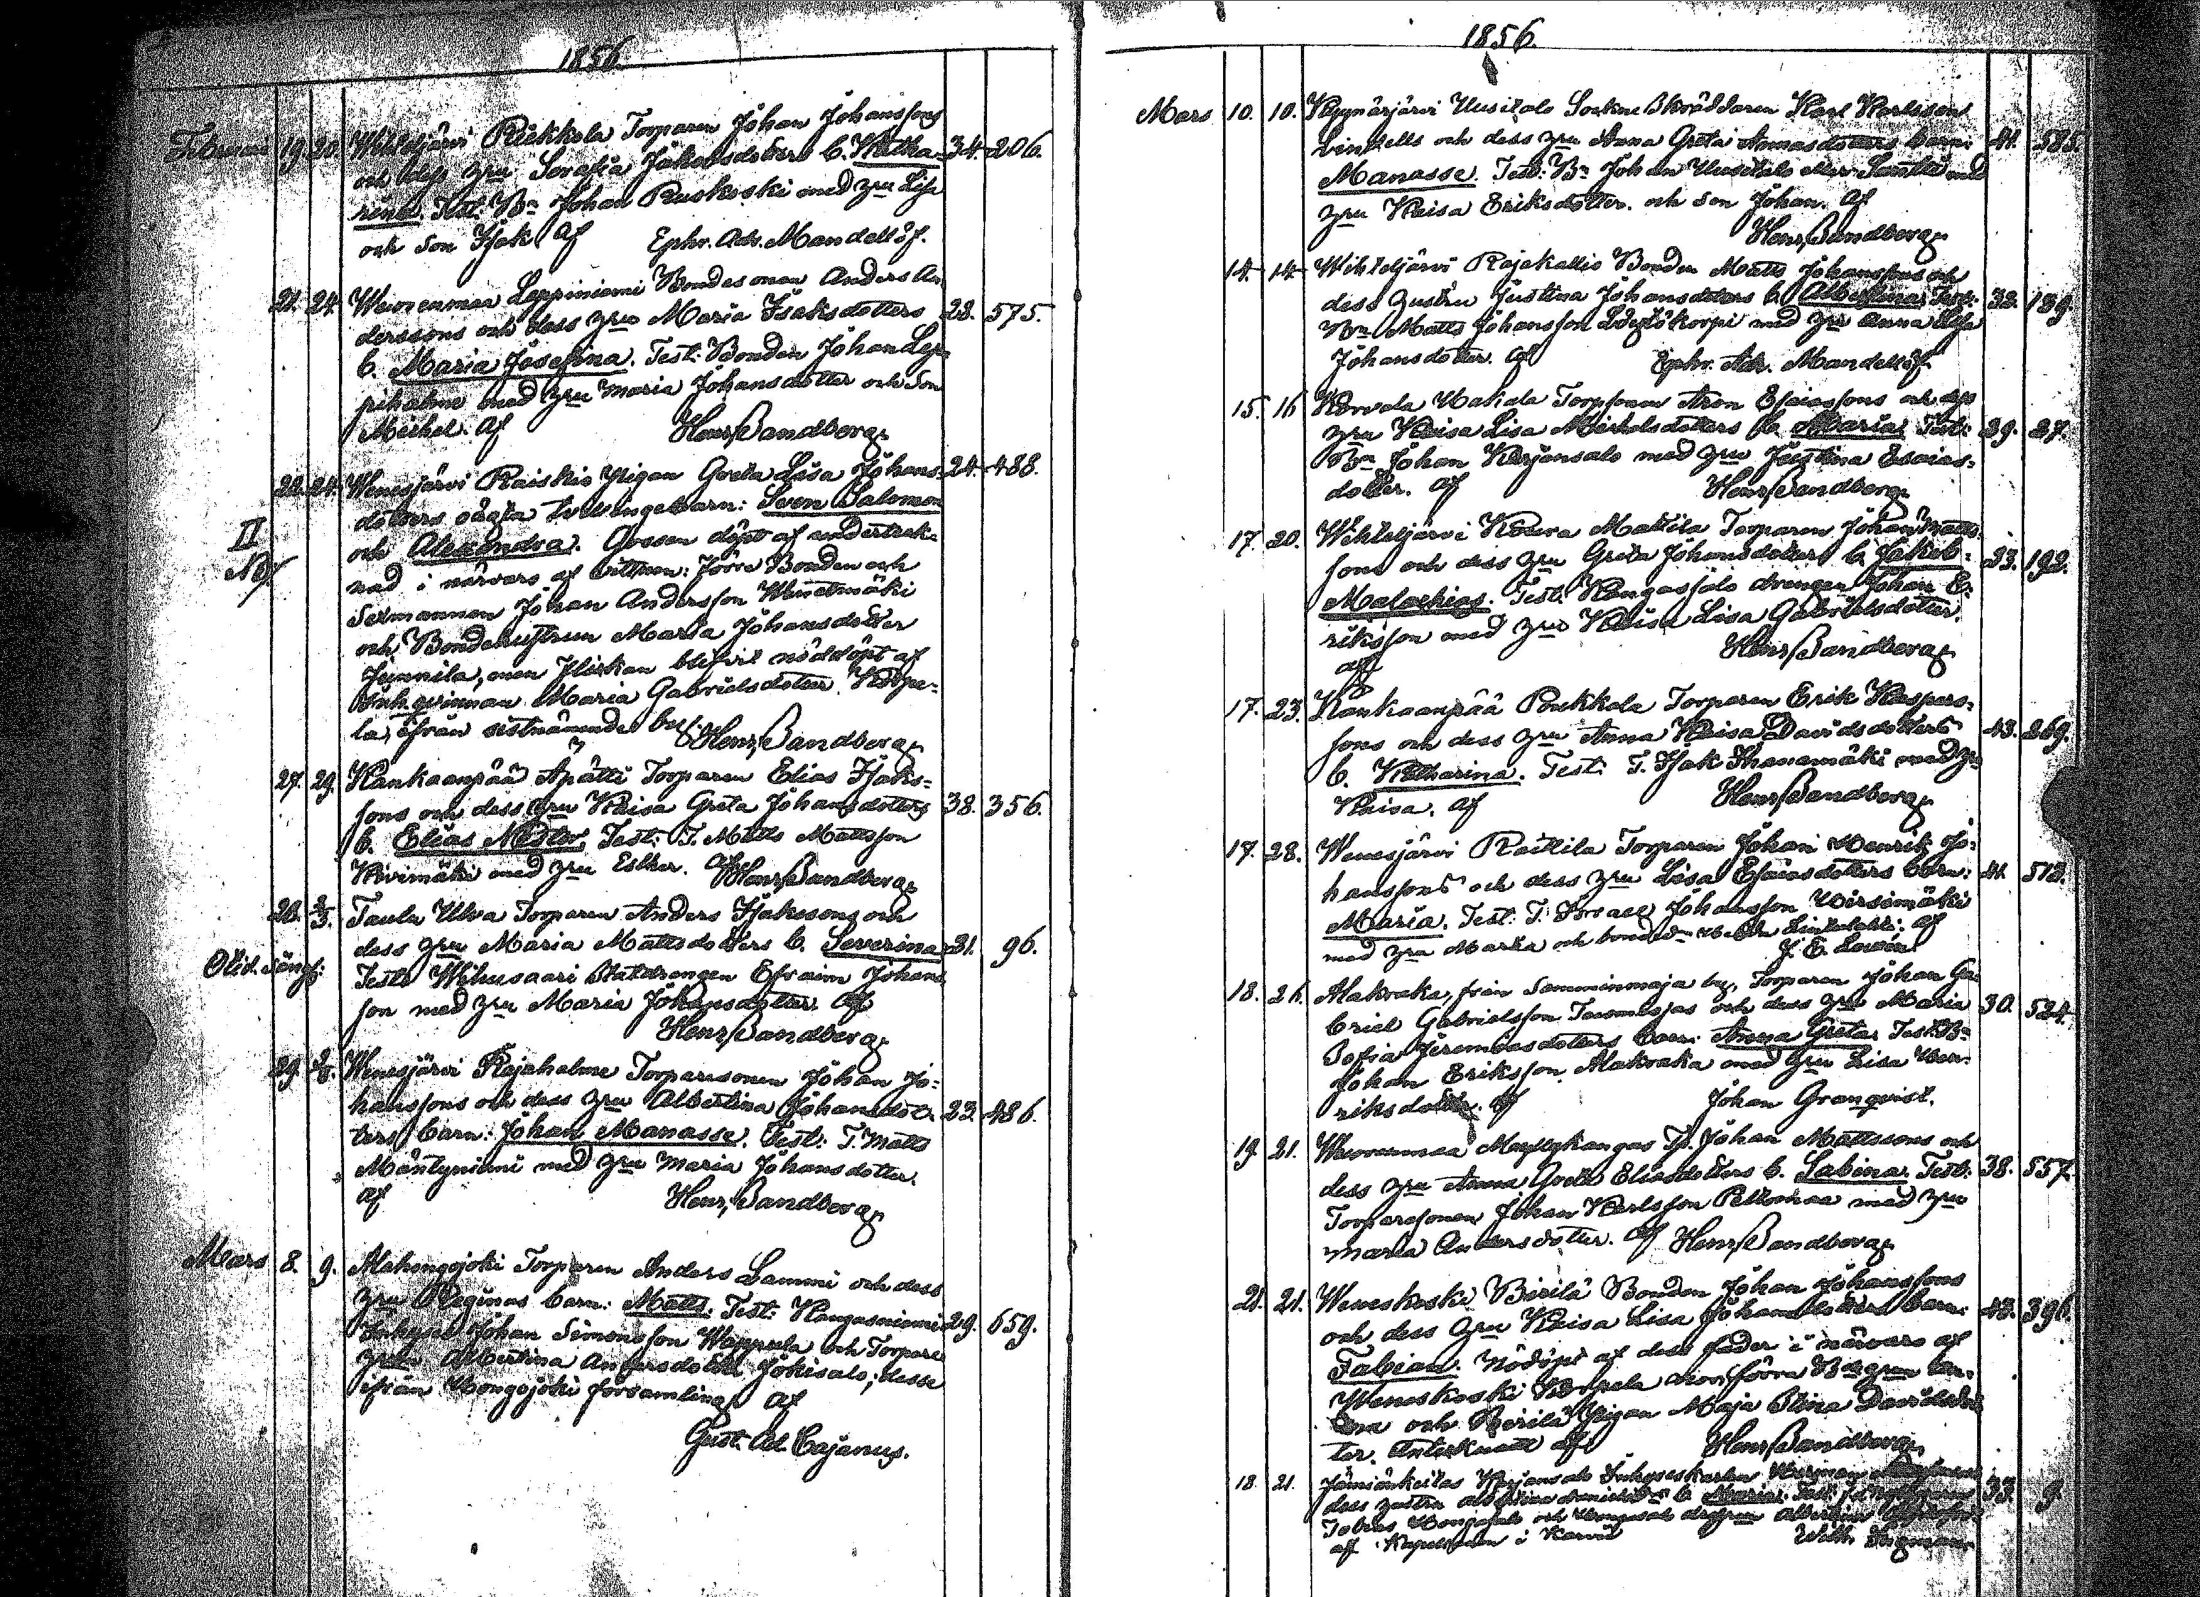 1856.
Februari 19. 20. Wihteljärvi Riekkola Torparen Johan Johanssons
och dess hru Serafia Jakobsdotters b. Wilhel- 34. 206.
mina. Test: Bn Johan Ruskoski med hru Lisa
och son Isak. Af Ephr. Adr. Mandellöf.
21. 24. Wuorenmaa Leppiniemi Bondesonen Anders An-
derssons och dess hru Maria Isaksdotters 23. 575.
b. Maria Josefina. Test: Bonden Johan Lep-
pihalme med hru Maria Johansdotter och son
Michel. Af Henr. Sandberg.
22. 24. Wenesjärvi Raiskio Pigan Greta Lisa Johans- 24. 488.
dotters oägta tvillingebarn: Sven Salomon
och Alexandra. Gossen döpt af underteck-
nad i närvaro af vittnen: förre Bonden och
Sexmannen Johan Andersson
och Bondehustrun Maria Johansdotter
Junnila, men flickan blifvit nöddöpt af
Inh. qvinnan Maria Gabrielsdotter Korpe-
la, ifrån sistnämnde by. Henr. Sandberg
II
27. 29. Kankaanpää Apätti Torparen Elias Isaks-
sons och dess hru Kaisa Greta Johansdotters 38. 356.
b. Elias Nestor. Test: T. Matts Mattsson
Kivimäki med hru Esther. Af Henr. Sandberg
28. 2/3. Taula Ulva Torparen Anders Isakssons och
dess hru Maria Mattsdotters b. Severina 31. 96.
Test: Wihusaari Statdrengen Efraim Johans-
son med hru Maria Johansdotter. Af
Henr. Sandberg
29. Wenesjärvi Rajahalme Torparesonen Johan Jo-
hanssons och dess hru Albertina Johansdot- 23. 486.
ters barn: Johan Manasse. Test: T. Matts
Mäntyniemi med hru Maria Johansdotter.
af Henr. Sandberg
Mars 8. 9. Alahongojoki Torparen Anders Lammi och dess
hru Reginas barn: Matts. Test: Kangasniemi 29. 659.
Inhyses Johan Simonsson Wappula och Torpare
hrun Albertina Andersdotter Jokisalo; desse
ifrån Hongojoki församling. Af
Gust. Ad. Cajanus.
1856.
Mars 10. 10. Kyynärjärvi Uusitalo Sockne Skräddaren Karl Karlsson
Lindells och dess hru Anna Greta Annasdotters barn: 41. 585.
Manasse. Test: Bn Johan Uusitalo eller Santti med
hru Kaisa Eriksdotter och son Johan. Af
Henr. Sandberg
14. 14. Wihteljärvi Rajakallio Bonden Matts Johanssons och
dess hustru Justina Johansdotters b. Albertina. Test: 32. 139.
Bn Matts Johansson med hru Anna Lisa
Johansdotter. Af Ephr. Adr. Mandellöf
15. 16. Torparen Aron Esaiassons och dess
hru Kaisa Lisa Michelsdotters b. Maria. Test: 29. 27.
Bn Johan Karjansalo med hru Justina Esaias-
dotter. Af Henr. Sandberg
17. 20. Wihteljärvi Koura Mattila Torparen Johan Matts-
sons och dess hru Greta Johansdotters b. Jakob 33. 192.
Malachias. Test: Kangassalo drengen Johan E-
riksson med hru Kaisa Lisa Gabrielsdotter.
af Henr. Sandberg
17. 23. Kankaanpää Poukkola Torparen Erik Kaspers-
sons och dess hru Anna Kaisa Davidsdotters 43. 269.
b. Katharina. Test: T. Isak Ihanamäki med hru
Kaisa. Af Henr. Sandberg
17. 28. Wenesjärvi Raitila Torparen Johan Henrik Jo-
hanssons och dess hru Lisa Esaiasdotters barn: 41. 512.
Maria. Test: T. Johansson
med hru Maria och Af
J. E. Lovén
18. 26. Alakraka, från Samminmaja by, Torparen Johan Ga-
briel Gabrielsson och dess hru Maria 30. 524.
Sofia Jeremiasdotters barn: Anna Greta. Test: Bn
Johan Eriksson Alakraka med hru Lisa Hen-
riksdotter. Af Johan Granqvist.
19. 21. Wuorenmaa Myllykangas Tp. Johan Mattssons och
dess hru Anna Greta Eliasdotters b. Sabina. Test: 38. 557.
Torparesonen Johan Karlsson Peltomaa med hru
Maria Andersdotter. Af Henr. Sandberg
21. 21. Weneskoski Birilä Bonden Johan Johanssons
och dess hru Kaisa Lisa Johansdotters barn: 43. 396.
Fabian. Nöddöpt af dess fader i närvaro af
Weneskoski Korpela
och Birilä Pigan Maja Stina Davidsdot-
ter. Antecknadt af Henr. Sandberg
18. 21. Jämiänkeitas Karjansalo Inhyseskarlen Herman
dess hustru b. Maria. Test: 33. 9.
Tobias
af Kapellanen i Karvia Wilh. Ingman